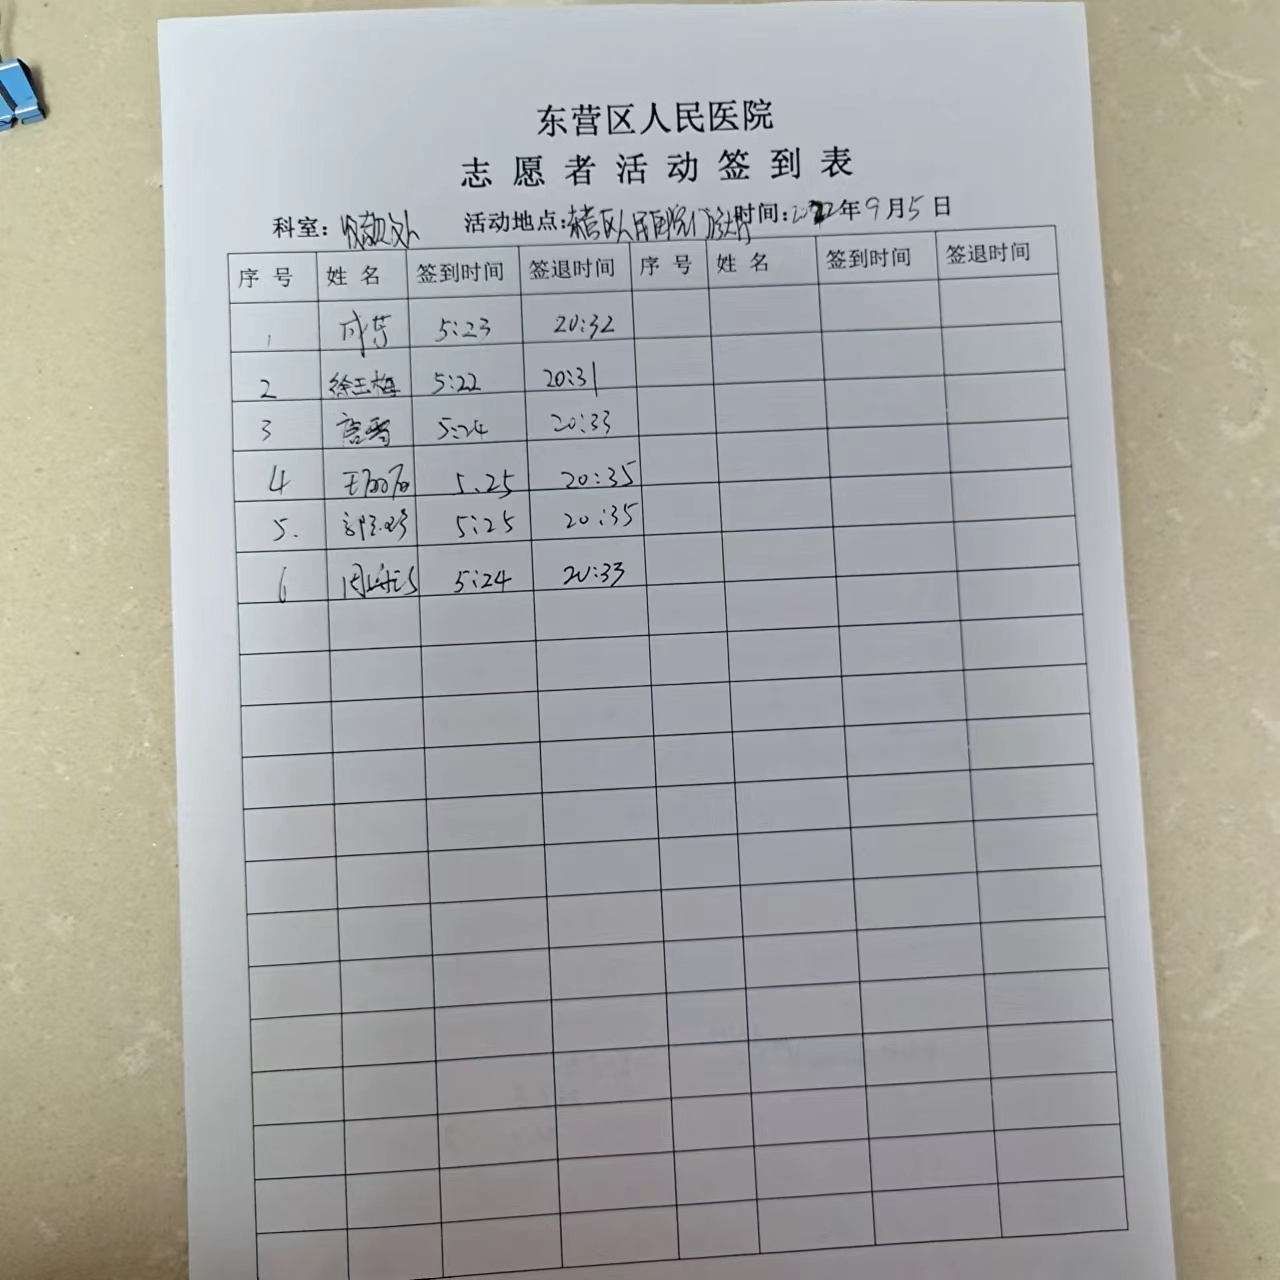 东营区人民医院
志愿者活动签到表
科室：收款处 活动地点：东营区人民医院门诊大厅 时间：2022年9月5日
序号 姓名 签到时间 签退时间 序号 姓名 签到时间 签退时间
1 成芳 5:23 20:32
2 徐玉梅 5:22 20:31
3 5:24 20:33
4 5.25 20:35
5. 5:25 20:35
6 5:24 20:33